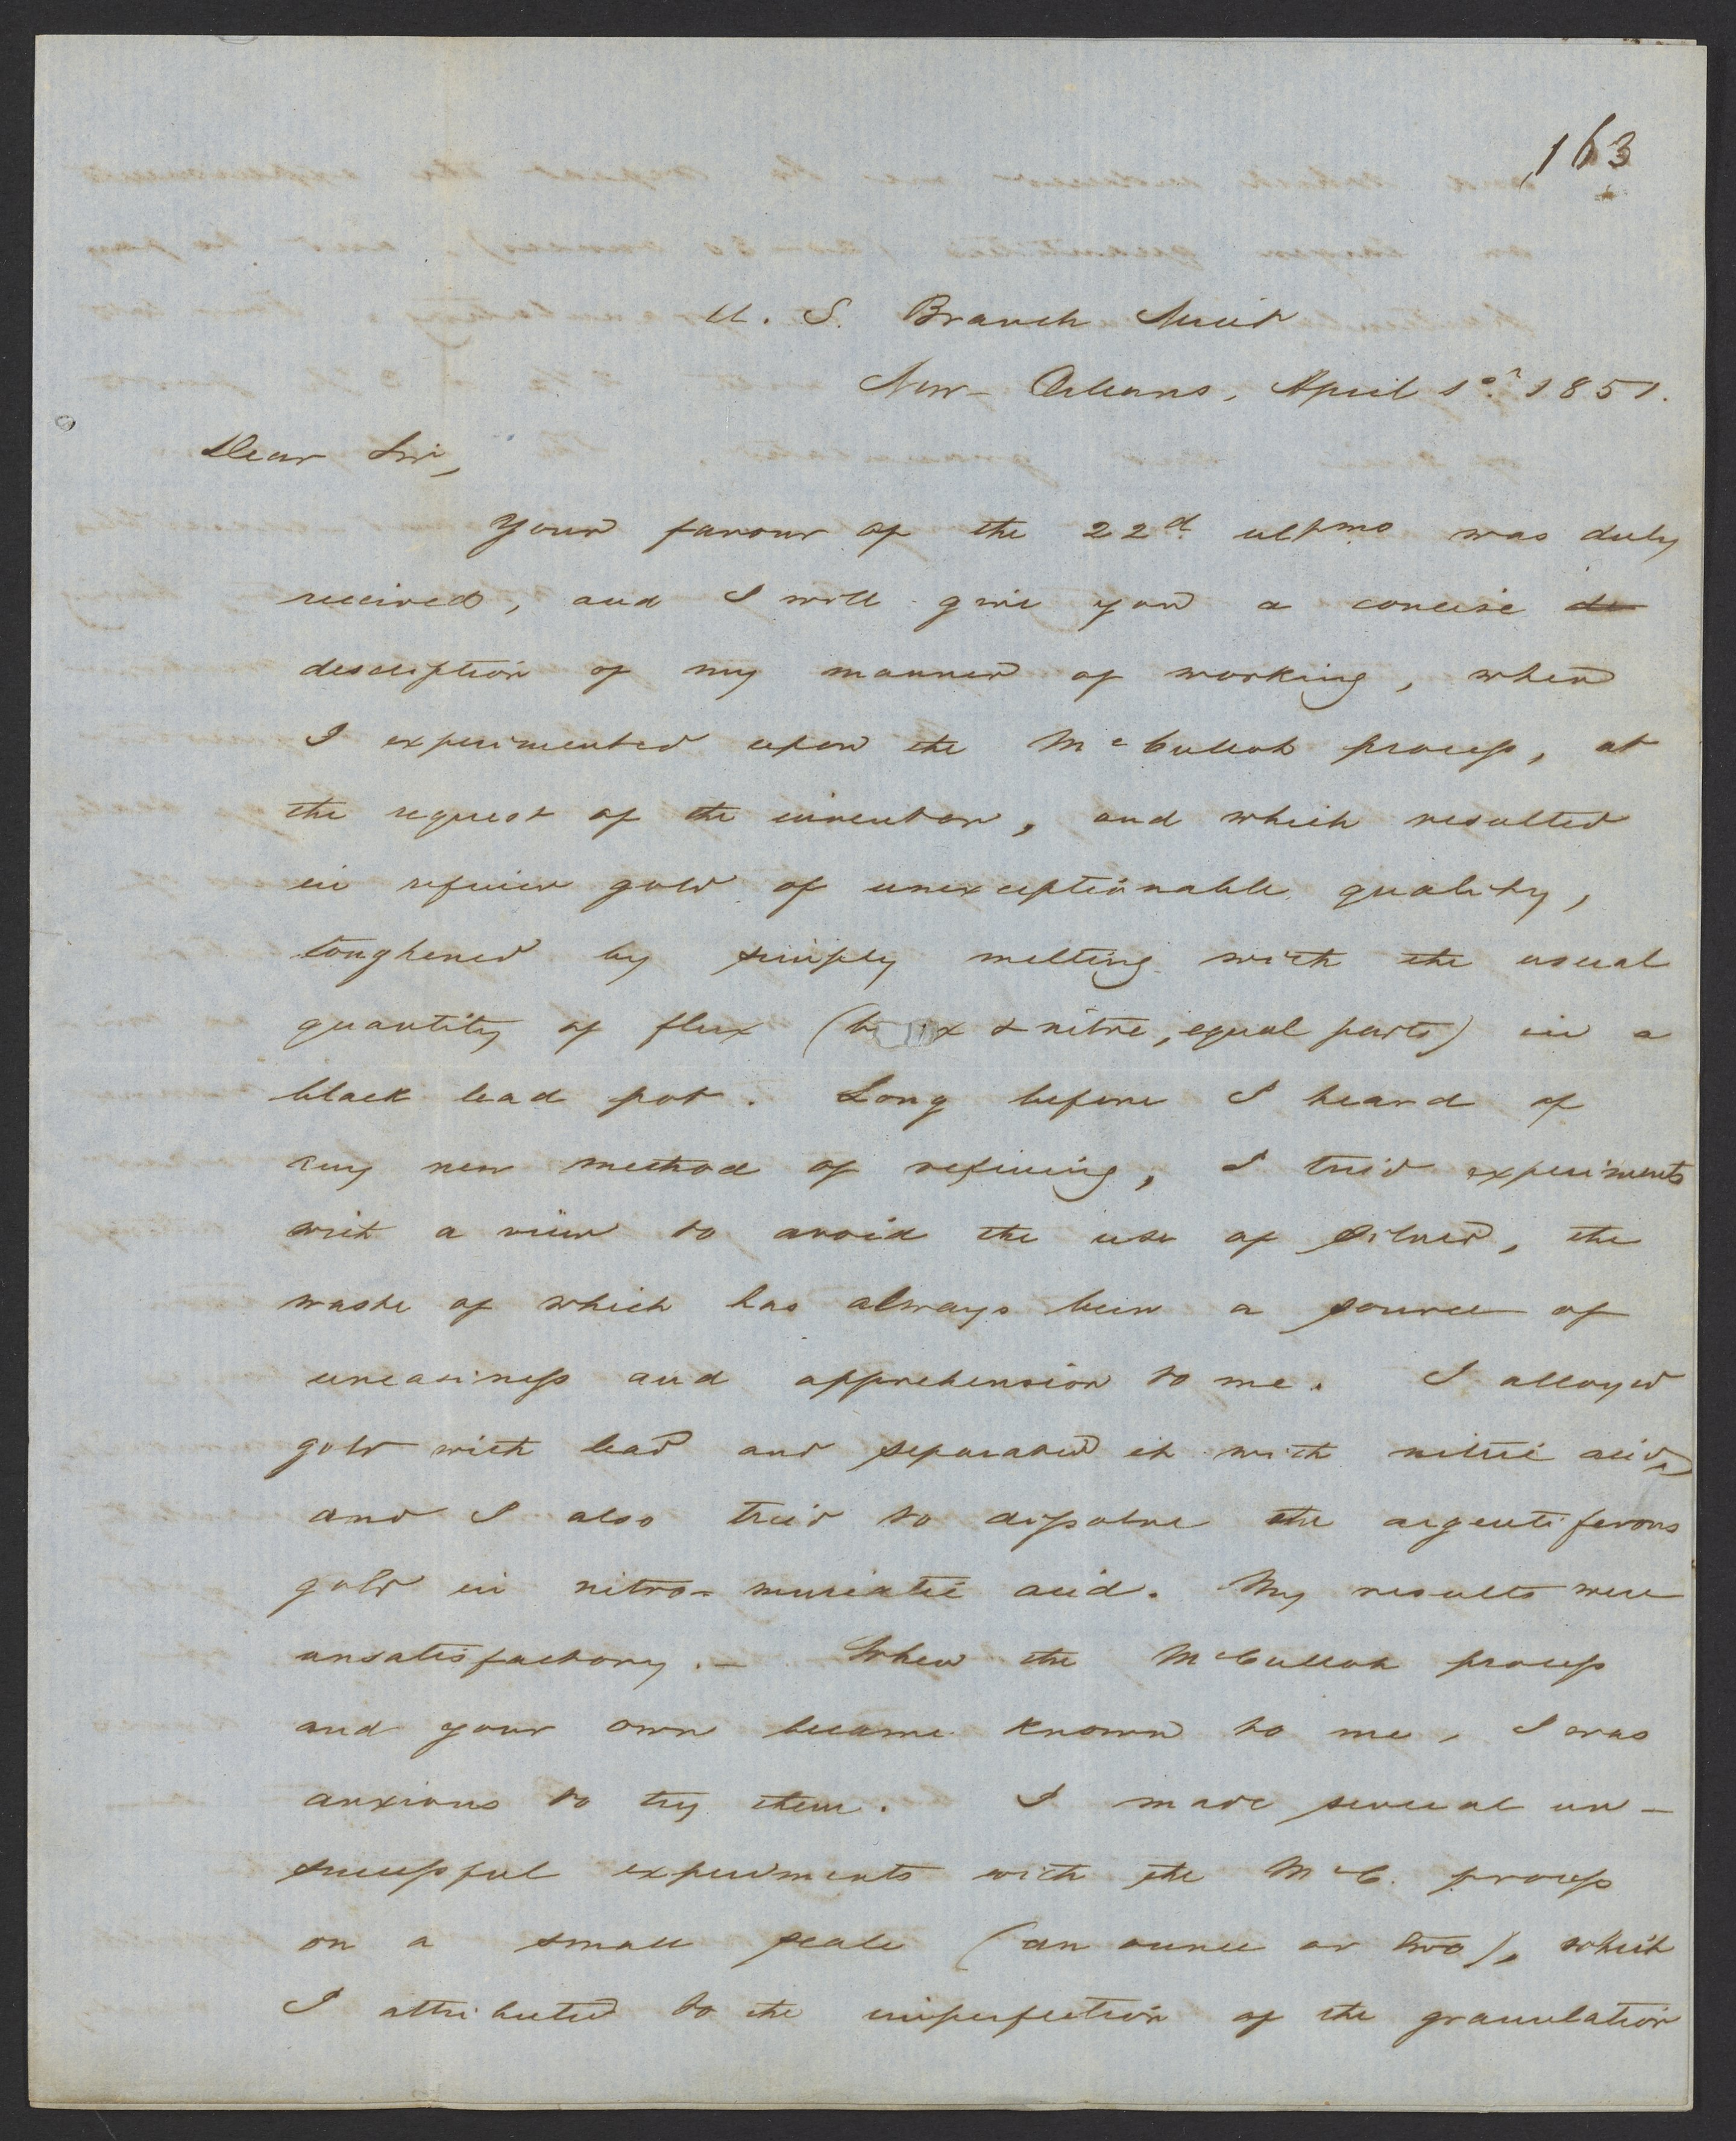 163
U. S. Branch Mint
New-Orleans, April 1st. 1851.
Dear Sir,
Your favour of the 22d ultmo was duly
received, and I will give you a concise de
description of my manner of working, when
I experimented upon the McCulloh process, at
the request of the inventor, and which resulted
in refined gold of unexceptionable quality,
toughened by simply melting with the usual
quantity of flux (b x & nitre, equal parts) in a
black lead pot. Long before I heard of
any new method of refining, I tried experiments
with a view to avoid the use of silver, the
waste of which has always been a source of
uneasiness and apprehension to me. I alloyed
gold with lead and separated it with nitric acid,
and I also tried to dissolve the argentiferous
gold in nitro-muriatic acid. My results were
unsatisfactory.- When the McCulloh process
and your own became known to me, I was
anxious to try them. I made several un-
successful experiments with the McC. process
on a small scale (an ounce or two), which
I attributed to the imperfection of the granulation